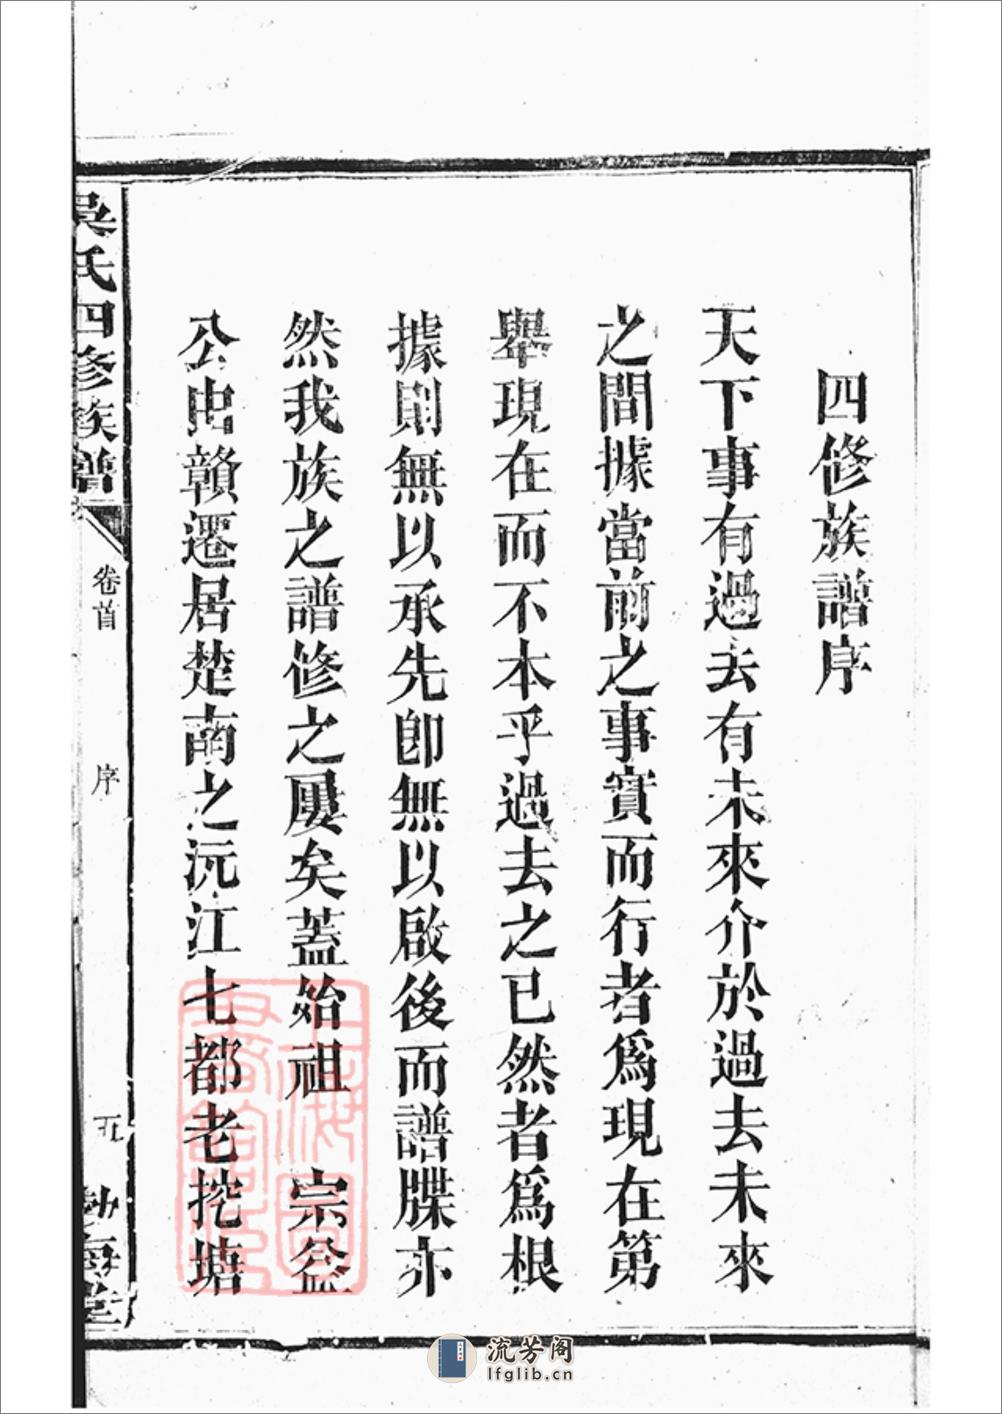 四修族譜序
天下事有過去有未來介於過去未來
之間據當前之事實而行者爲現在第
舉現在而不本乎過去之已然者爲根
據則無以承先卽無以啟後而譜牒亦
然我族之譜修之屢矣蓋始祖 宗益
公由贛遷居楚南之沅江七都老挖塘
吳氏四修族譜
卷首
序
五
流芳阁
lfglib.cn